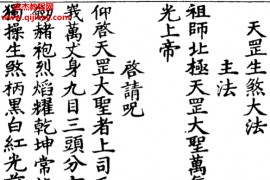 天罡生煞大法
主法
祖師北極天罡大聖萬
光上帝
啓請呪
仰啓天罡大聖者上司
峩萬丈身九目三頭分
赭袍烈焰耀乾坤常
獨操生煞柄黑白紅光